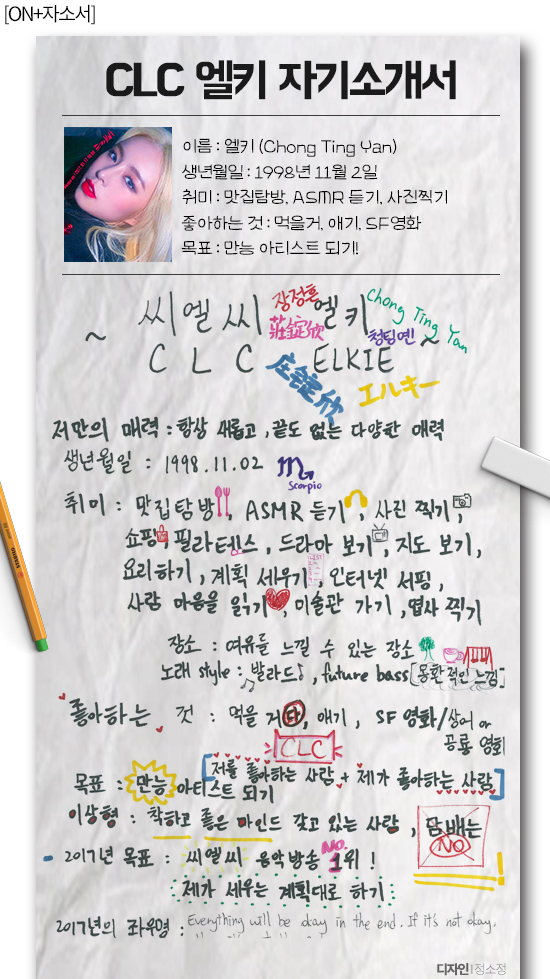 [ON+자소서]
CLC 엘키 자기소개서
이름 : 엘키 (Chong Ting Yan)
생년월일 : 1998년 11월 2일
취미 : 맛집탐방, ASMR 듣기, 사진찍기
좋아하는 것 : 먹을거, 얘기, SF영화
목표 : 만능 아티스트 되기!
~ 씨엘씨 장정흔 엘키 Chong Ting Yan
莊錠欣 청팅옌 ~
CLC ELKIE
庄锭欣 エルキー
저만의 매력 : 항상 새롭고, 끝도 없는 다양한 매력
생년월일 : 1998.11.02 Scorpio
취미 : 맛집탐방, ASMR 듣기, 사진 찍기,
쇼핑, 필라테스, 드라마 보기, 지도 보기,
요리하기, 계획 세우기, 인터넷 서핑,
사람 마음을 읽기, 미술관 가기, 엽사 찍기
장소 : 여유를 느낄 수 있는 장소
노래 style : 발라드, future bass [몽환적인 느낌]
좋아하는 것 : 먹을 거 다, 얘기, SF 영화/상어 or
공룡 영화
CLC
[저를 좋아하는 사람 + 제가 좋아하는 사람]
목표 : 만능 아티스트 되기
이상형 : 착하고 좋은 마인드 갖고 있는 사람, 담배는
NO
!
2017년 목표 : 씨엘씨 음악방송 No. 1위!
제가 세우는 계획대로 하기
2017년의 좌우명 : Everything will be okay in the end. If it's not okay,
디자인|정소정